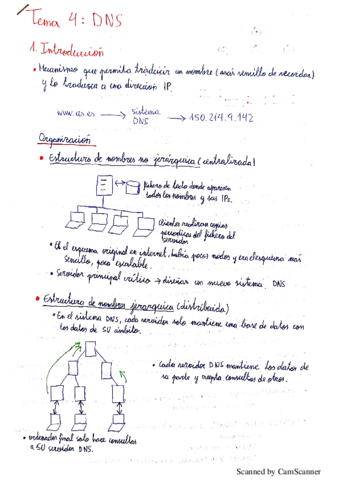 Tema 4: DNS
1. Introducción
• Mecanismo que permita traducir un nombre (más sencillo de recordar)
y lo traduzca a una dirección IP.
www.us.es → sistema DNS → 150.214.9.142
Organización
• Estructura de nombres no jerárquica (centralizada)
fichero de texto donde aparecen
todos los nombres y sus IPs.
clientes realizan copias
periódicas del fichero del
servidor
• Es el esquema original en internet, había pocos nodos y era el esquema más
sencillo, poco escalable.
• Servidor principal crítico → diseñar un nuevo sistema DNS
• Estructura de nombres jerárquica (distribuida)
• En el sistema DNS, cada servidor solo mantiene una base de datos con
los datos de SU ámbito.
• Cada servidor DNS mantiene los datos de
su parte y consultas de otros.
• ordenador final solo hace consultas
a SU servidor DNS.
Scanned by CamScanner